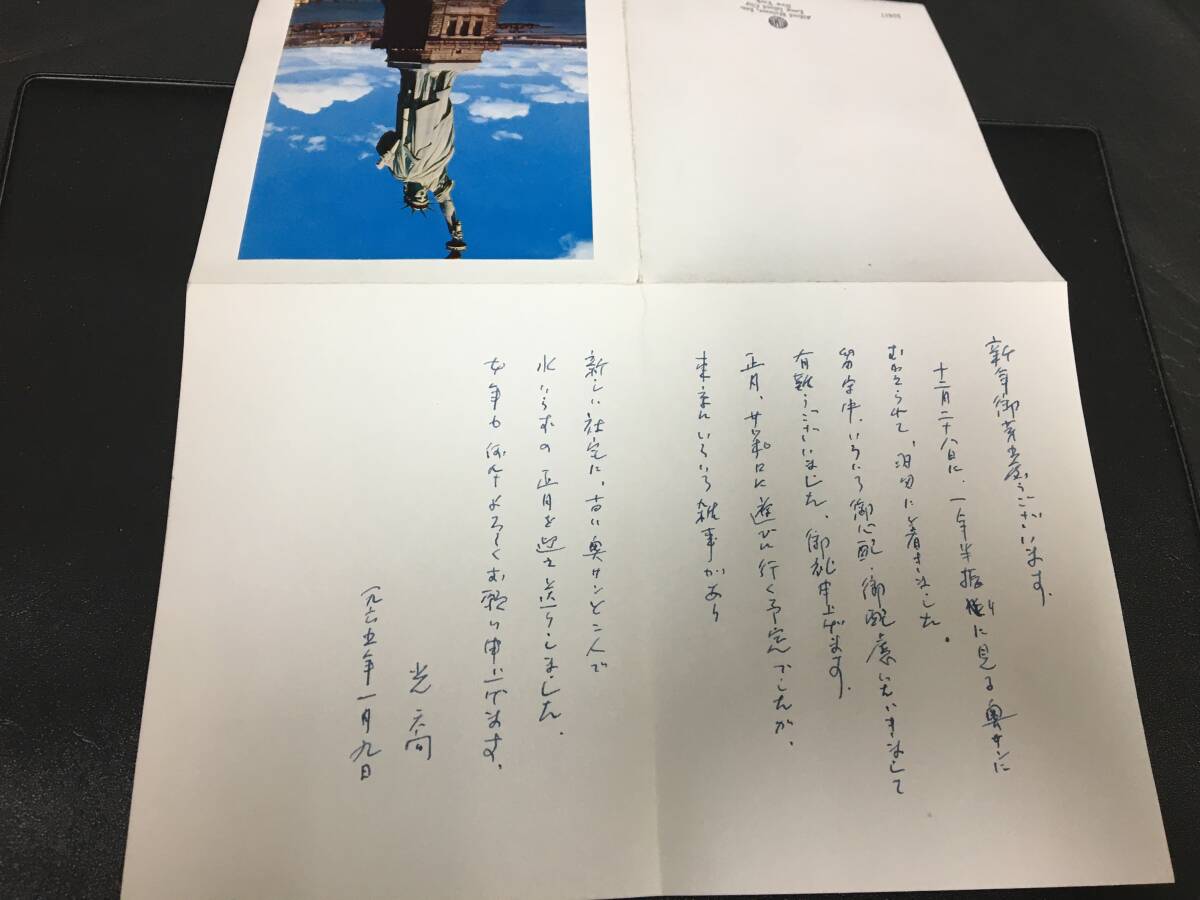 新年御芽出度うございます。
十二月二十八日に、一年半振りに見る奥サンに
むかえられて、羽田に着きました。
留学中、いろいろ御心配・御配慮いただきまして
有難うございました。御礼申上げます。
正月、サッポロに遊びに行く予定でしたが、
東京にいろいろ雑事があり
新しい社宅に、古い奥サンと二人で
水いらずの正月を迎え送りしました。
本年も何卒よろしくお願い申し上げます。
光
一九六五年一月九日
Alfred Mainzer, Inc.
Long Island City
New York